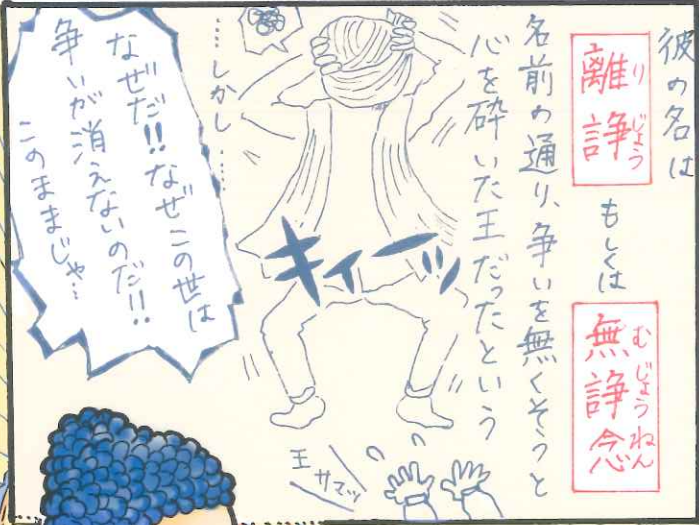 彼の名は
離諍
りじょう
もしくは
無諍念
むじょうねん
名前の通り、争いを無くそうと
心を砕いた王だったという
……しかし……
キィーッ
なぜだ!!なぜこの世は
争いが消えないのだ!!
このままじゃ…
王サマッ